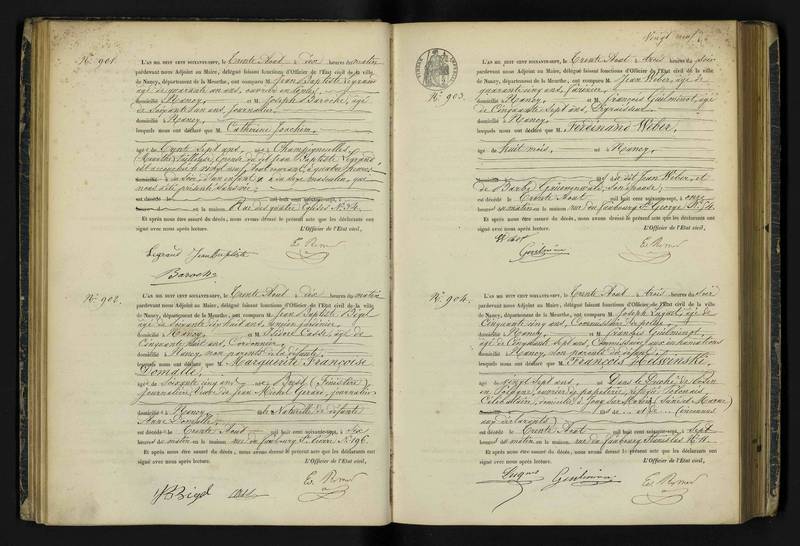 N° 901.
L'AN MIL HUIT CENT SOIXANTE-SEPT, le Trente Août à dix heures du matin
pardevant nous Adjoint au Maire, délégué faisant fonctions d'Officier de l'État civil de la ville
de Nancy, département de la Meurthe, ont comparu M. Jean Baptiste Legrand
âgé de quarante un ans, ouvrier en
domicilié à Nancy, et M. Joseph Baroche, âgé
de soixante un ans, journalier,
domicilié à Nancy,
lesquels nous ont déclaré que M. Catherine Joachim,
âgé de trente sept ans, né à Champigneulles
(Meurthe) épouse du dit Jean Baptiste Legrand
est accouchée
à quatre heures
du soir, d'un enfant du sexe masculin, qui
nous a été présenté sans vie
est décédé le mil huit cent soixante-sept, à
en la maison Rue des quatre Eglises N° 34.
Et après nous être assuré du décès, nous avons dressé le présent acte que les déclarants ont
signé avec nous après lecture. L'Officier de l'État civil,
Legrand Jean Baptiste
Baroche
N° 902.
L'AN MIL HUIT CENT SOIXANTE-SEPT, le Trente Août à dix heures du matin
pardevant nous Adjoint au Maire, délégué faisant fonctions d'Officier de l'État civil de la ville
de Nancy, département de la Meurthe, ont comparu M. Jean Baptiste Bigel
âgé de soixante dix huit ans, ancien jardinier,
domicilié à Nancy, et M. Isidore Casse, âgé de
Cinquante huit ans, Cordonnier,
domicilié à Nancy, non parents à la défunte,
lesquels nous ont déclaré que Marguerite Françoise
Domalle,
âgée de soixante cinq ans, née à Brest (Finistère)
journalière, Veuve de Jean Michel Gérard, journalier
domiciliée à Nancy, fille Naturelle de défunte
Anne Domalle,
est décédée le Trente Août mil huit cent soixante-sept, à six
heures du matin en la maison rue du faubourg St. Pierre N° 196.
Et après nous être assuré du décès, nous avons dressé le présent acte que les déclarants ont
signé avec nous après lecture. L'Officier de l'État civil,
Bigel
Vingt neuf
N° 903.
L'AN MIL HUIT CENT SOIXANTE-SEPT, le Trente Août à trois heures du soir
pardevant nous Adjoint au Maire, délégué faisant fonctions d'Officier de l'État civil de la ville
de Nancy, département de la Meurthe, ont comparu M. Jean Weber, âgé de
quarante cinq ans,
domicilié à Nancy, et M. François Guilminot, âgé
de Cinquante Sept ans,
domicilié à Nancy,
lesquels nous ont déclaré que M. Ferdinand Weber,
âgé de huit mois, né à Nancy,
fils du dit Jean Weber, et
de Barbe son épouse;
est décédé le Trente Août mil huit cent soixante-sept, à onze
heures du matin en la maison rue du faubourg St. George N° 54.
Et après nous être assuré du décès, nous avons dressé le présent acte que les déclarants ont
signé avec nous après lecture. L'Officier de l'État civil,
Weber
N° 904.
L'AN MIL HUIT CENT SOIXANTE-SEPT, le Trente Août à trois heures du soir
pardevant nous Adjoint au Maire, délégué faisant fonctions d'Officier de l'État civil de la ville
de Nancy, département de la Meurthe, ont comparu M. Joseph âgé de
Cinquante cinq ans, Commissaire de police,
domicilié à Nancy, et M. François Guilminot,
âgé de Cinquante sept ans, Commissaire aux inhumations
domicilié à Nancy, non parents du défunt,
lesquels nous ont déclaré que François
âgé de vingt sept ans, né Dans le Duché de
en Pologne, ouvrier de papeterie, réfugié Polonais,
Célibataire, domicilié à Jouy sur Morin (Seine et Marne)
fils de et de (inconnus
aux déclarants)
est décédé le Trente Août mil huit cent soixante-sept, à sept
heures du matin en la maison rue du faubourg Stanislas N° 11.
Et après nous être assuré du décès, nous avons dressé le présent acte que les déclarants ont
signé avec nous après lecture. L'Officier de l'État civil,